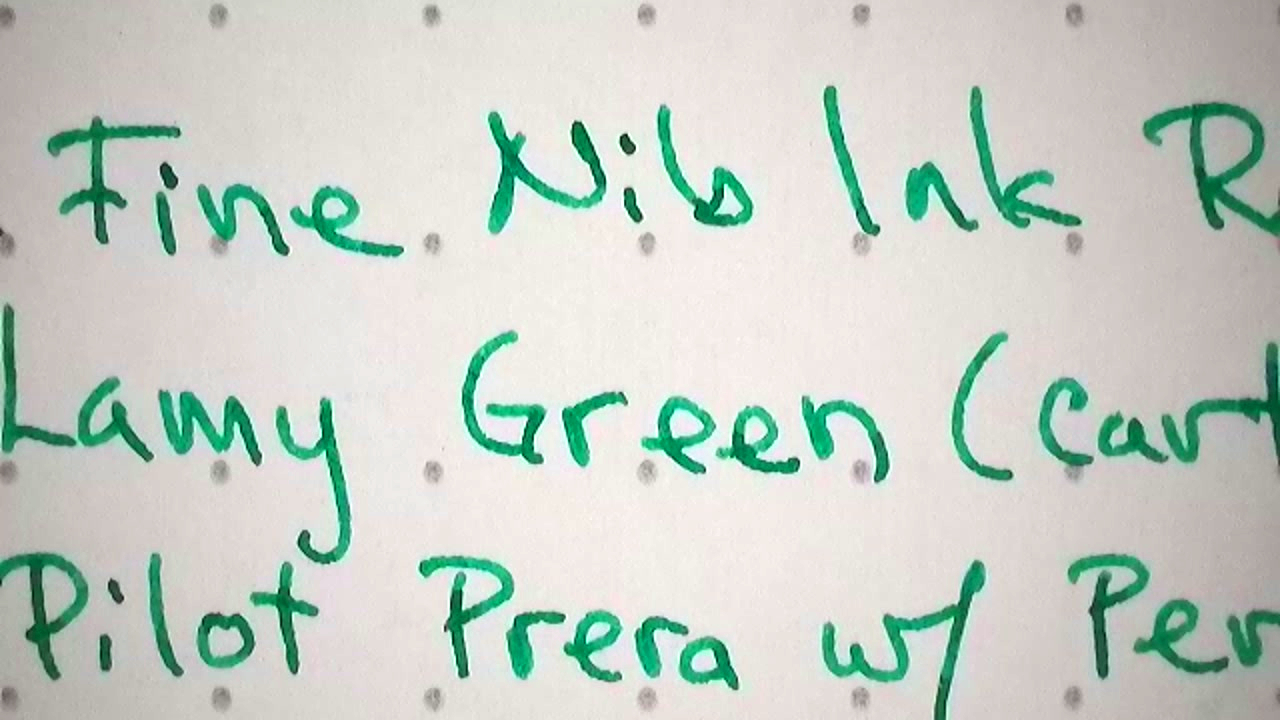 Fine Nib Ink R
Lamy Green (cart
Pilot Prera w/ Per